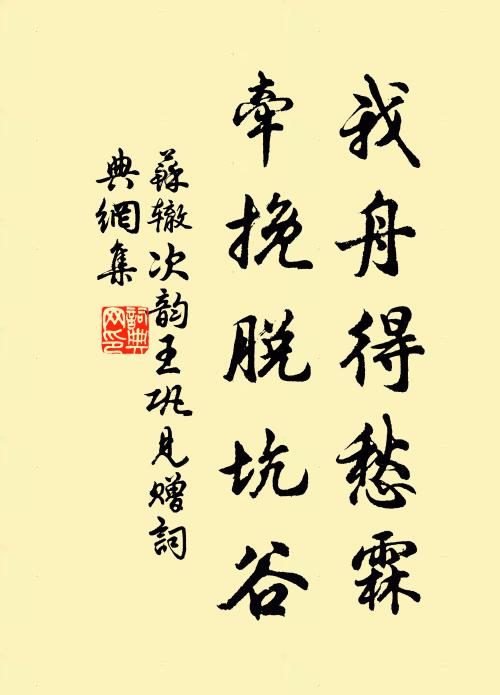 我舟得愁霖
牵挽脱坑谷
蘇辙次韵王巩见赠詞
典網集
詞典网印